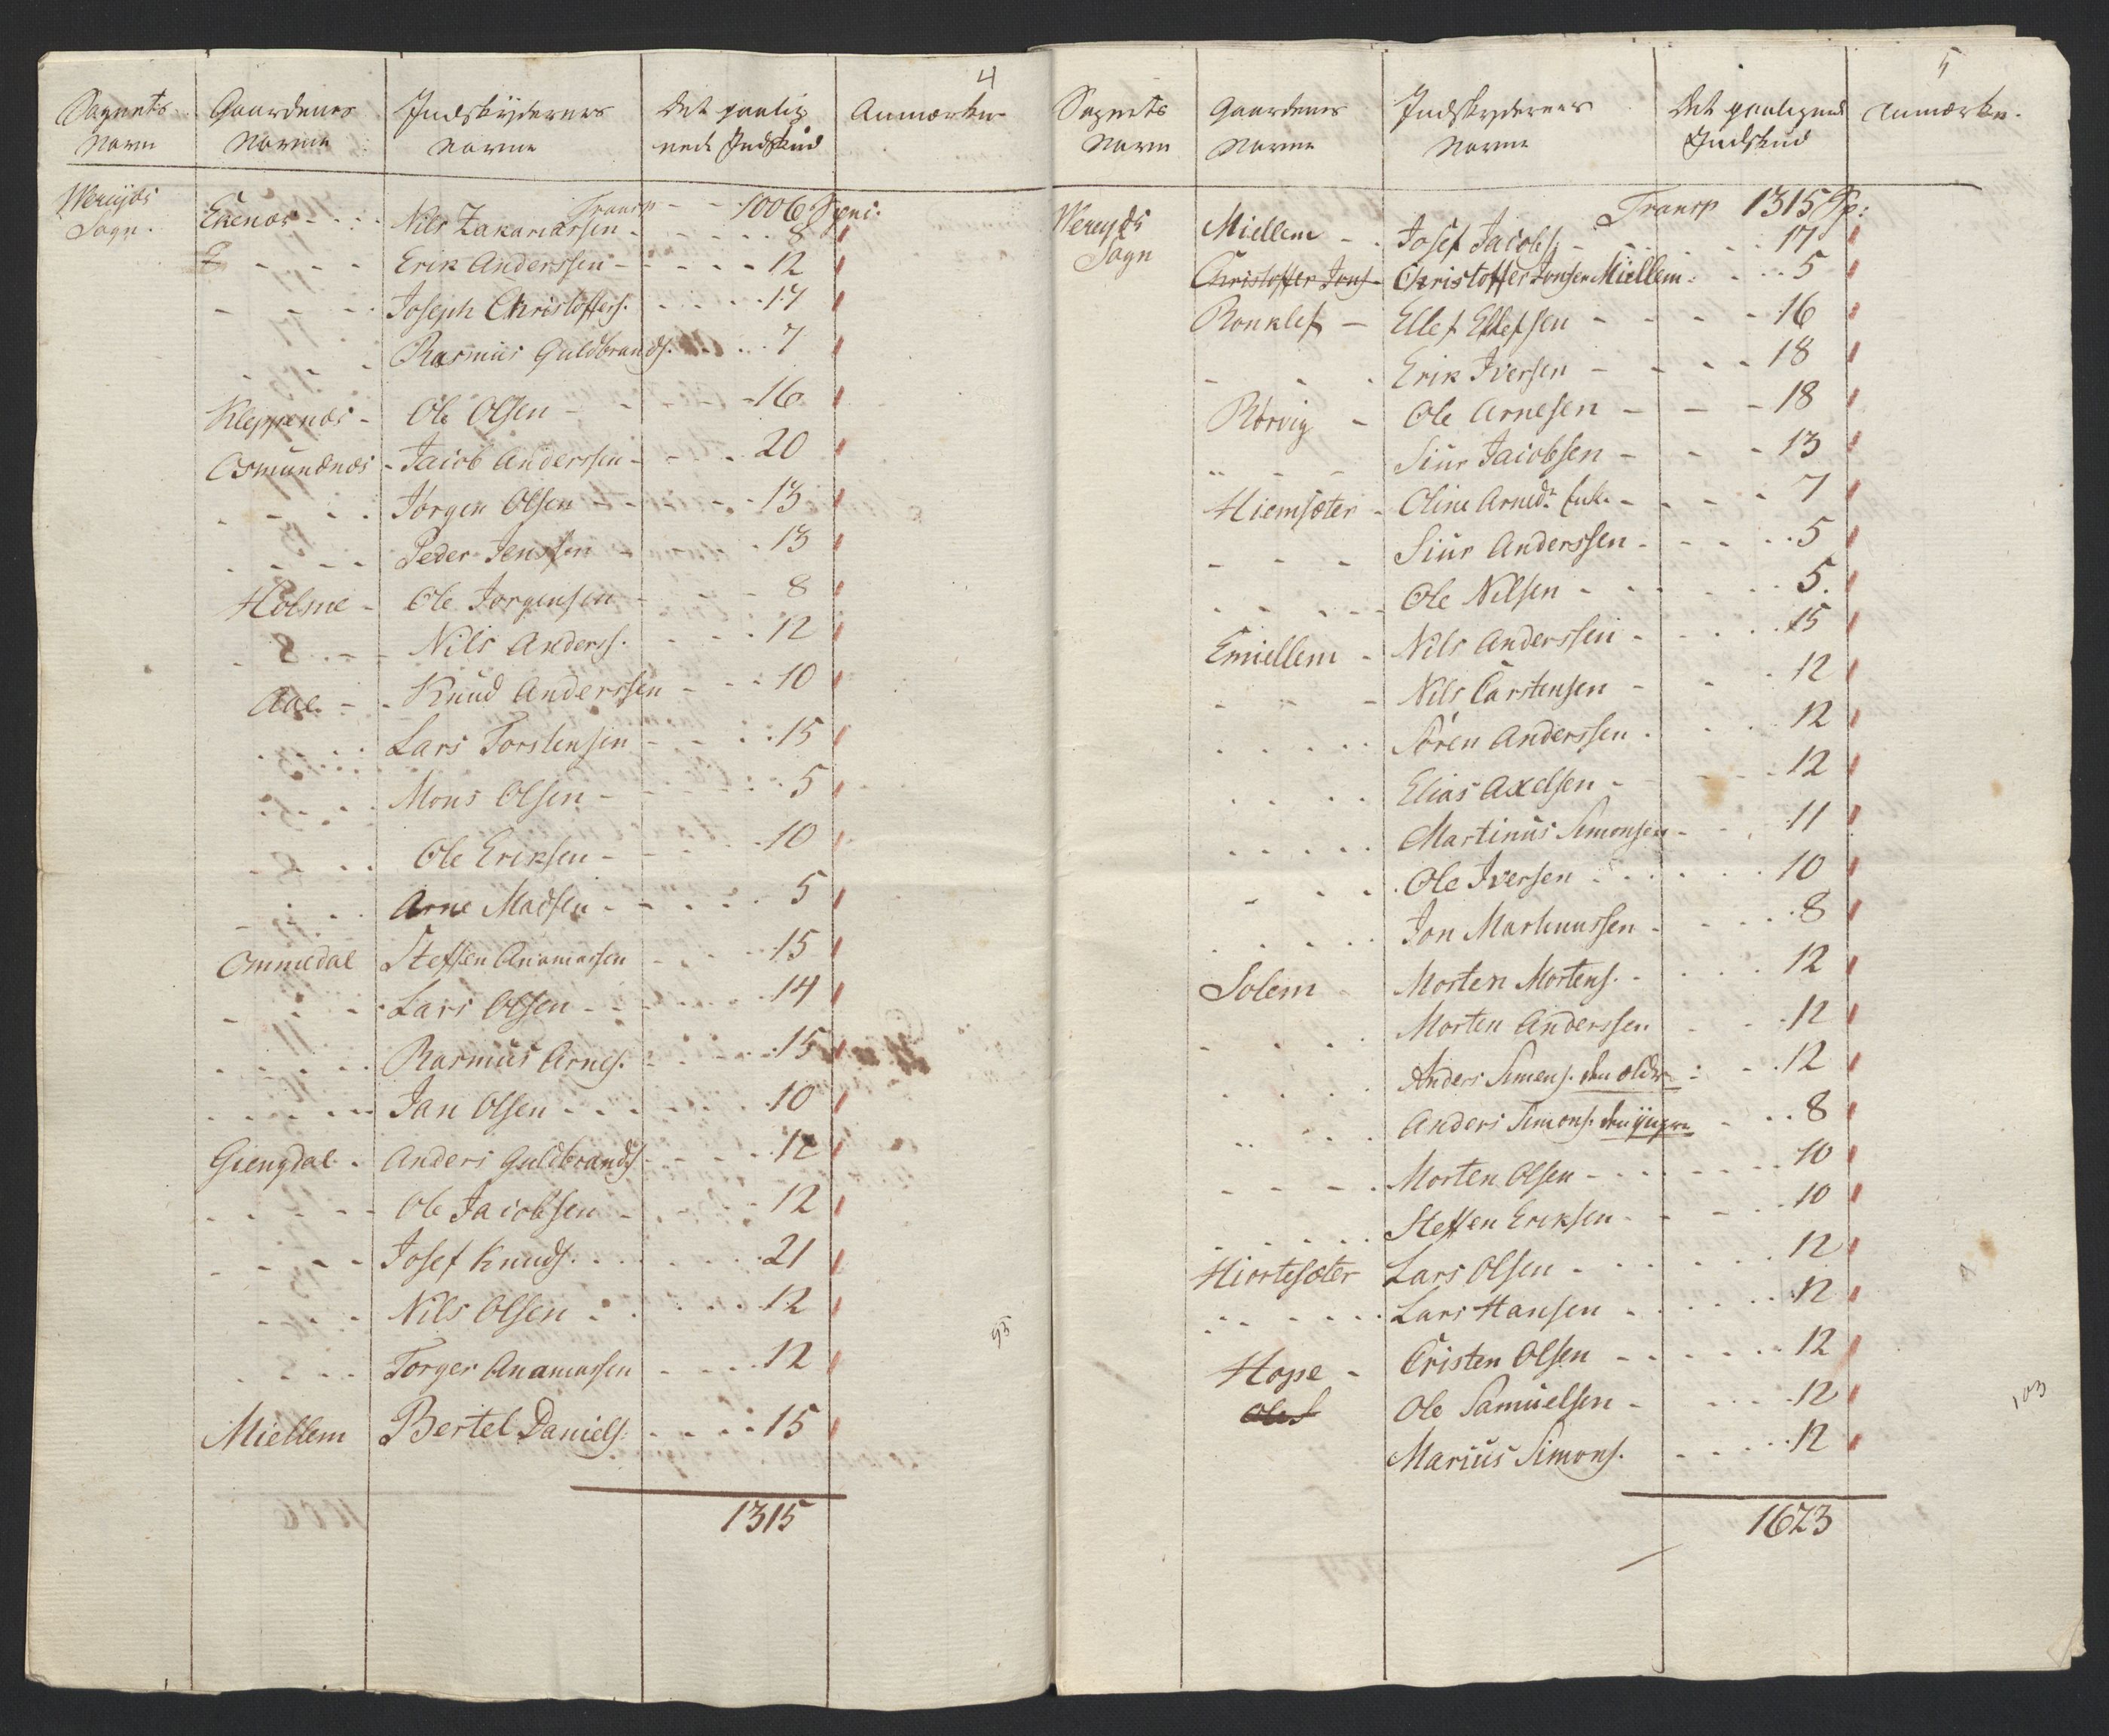 4
Sognets Gaardenes Indskÿdernes Det paalig Anmærkn
Navn Navne Navne nede Indskud
Wereÿds
Transp - - 1006 Speci.
Sogn. Ekenæs - Nils Zakariassen - 8
Erik Anderssen - 12
Joseph Christoffers. 17
Rasmus Guldbrands. 7
Kleppenæs - Ole Olsen - 16
Osmundnæs - Jacob Anderssen - 20
Jørgen Olsen - 13
Peder Jenssen - 13
Holme - Ole Jørgensen - 8
Nils Anderss. 12
Aae - Knud Anderssen - 10
Lars Torstensen - 15
Mons Olsen - 5
Ole Eriksen - 10
Arne Madsen - 5
Ommedal Steffen Anamassen 15
Lars Olsen - 14
Rasmus Arnes. 15
Jan Olsen - 10
Giengdal - Anders Guldbrands. 12
Ole Jacobsen - 12
Josef Knuds. 21
Nils Olsen 12
Torger Anamassen 12
Miellem Bertel Daniels. 15
1315
93
5
Sognets Gaardenes Indskÿdernes Det paaligend Anmærkn.
Navn Navne Navne Indskud
Transp 1315 Sp:
Wereÿds Miellem - Josef Jacobs. - 17
Sogn Christoffer Jons. Christoffer Jonsen Miellem 5
Ronklef - Ellef Ellefsen - 16
Erik Iversen - 18
Rørvig - Ole Arnesen - 18
Siur Jacobsen - 13
Hiemsæter - Oline Arnedr. Enke - 7
Siur Anderssen - 5
Ole Nilsen - 5.
Emiellem - Nils Anderssen - 15
Nils Carstensen - 12
Søren Anderssen - 12
Elias Axelsen - 12
Martinus Simonsen - 11
Ole Iversen 10
Jon Martinussen - 8
Solem - Morten Mortens. - 12
Morten Anderssen 12
Anders Simons. den ældre 12
Anders Simons. den ÿngre 8
Morten Olsen - 10
Steffen Eriksen - 10
Hiortesæter Lars Olsen - 12
Lars Hansen - 12
Hope - Cristen Olsen - 12
Ole S Ole Samuelsen - 12
Marius Simons. 12
1623
103